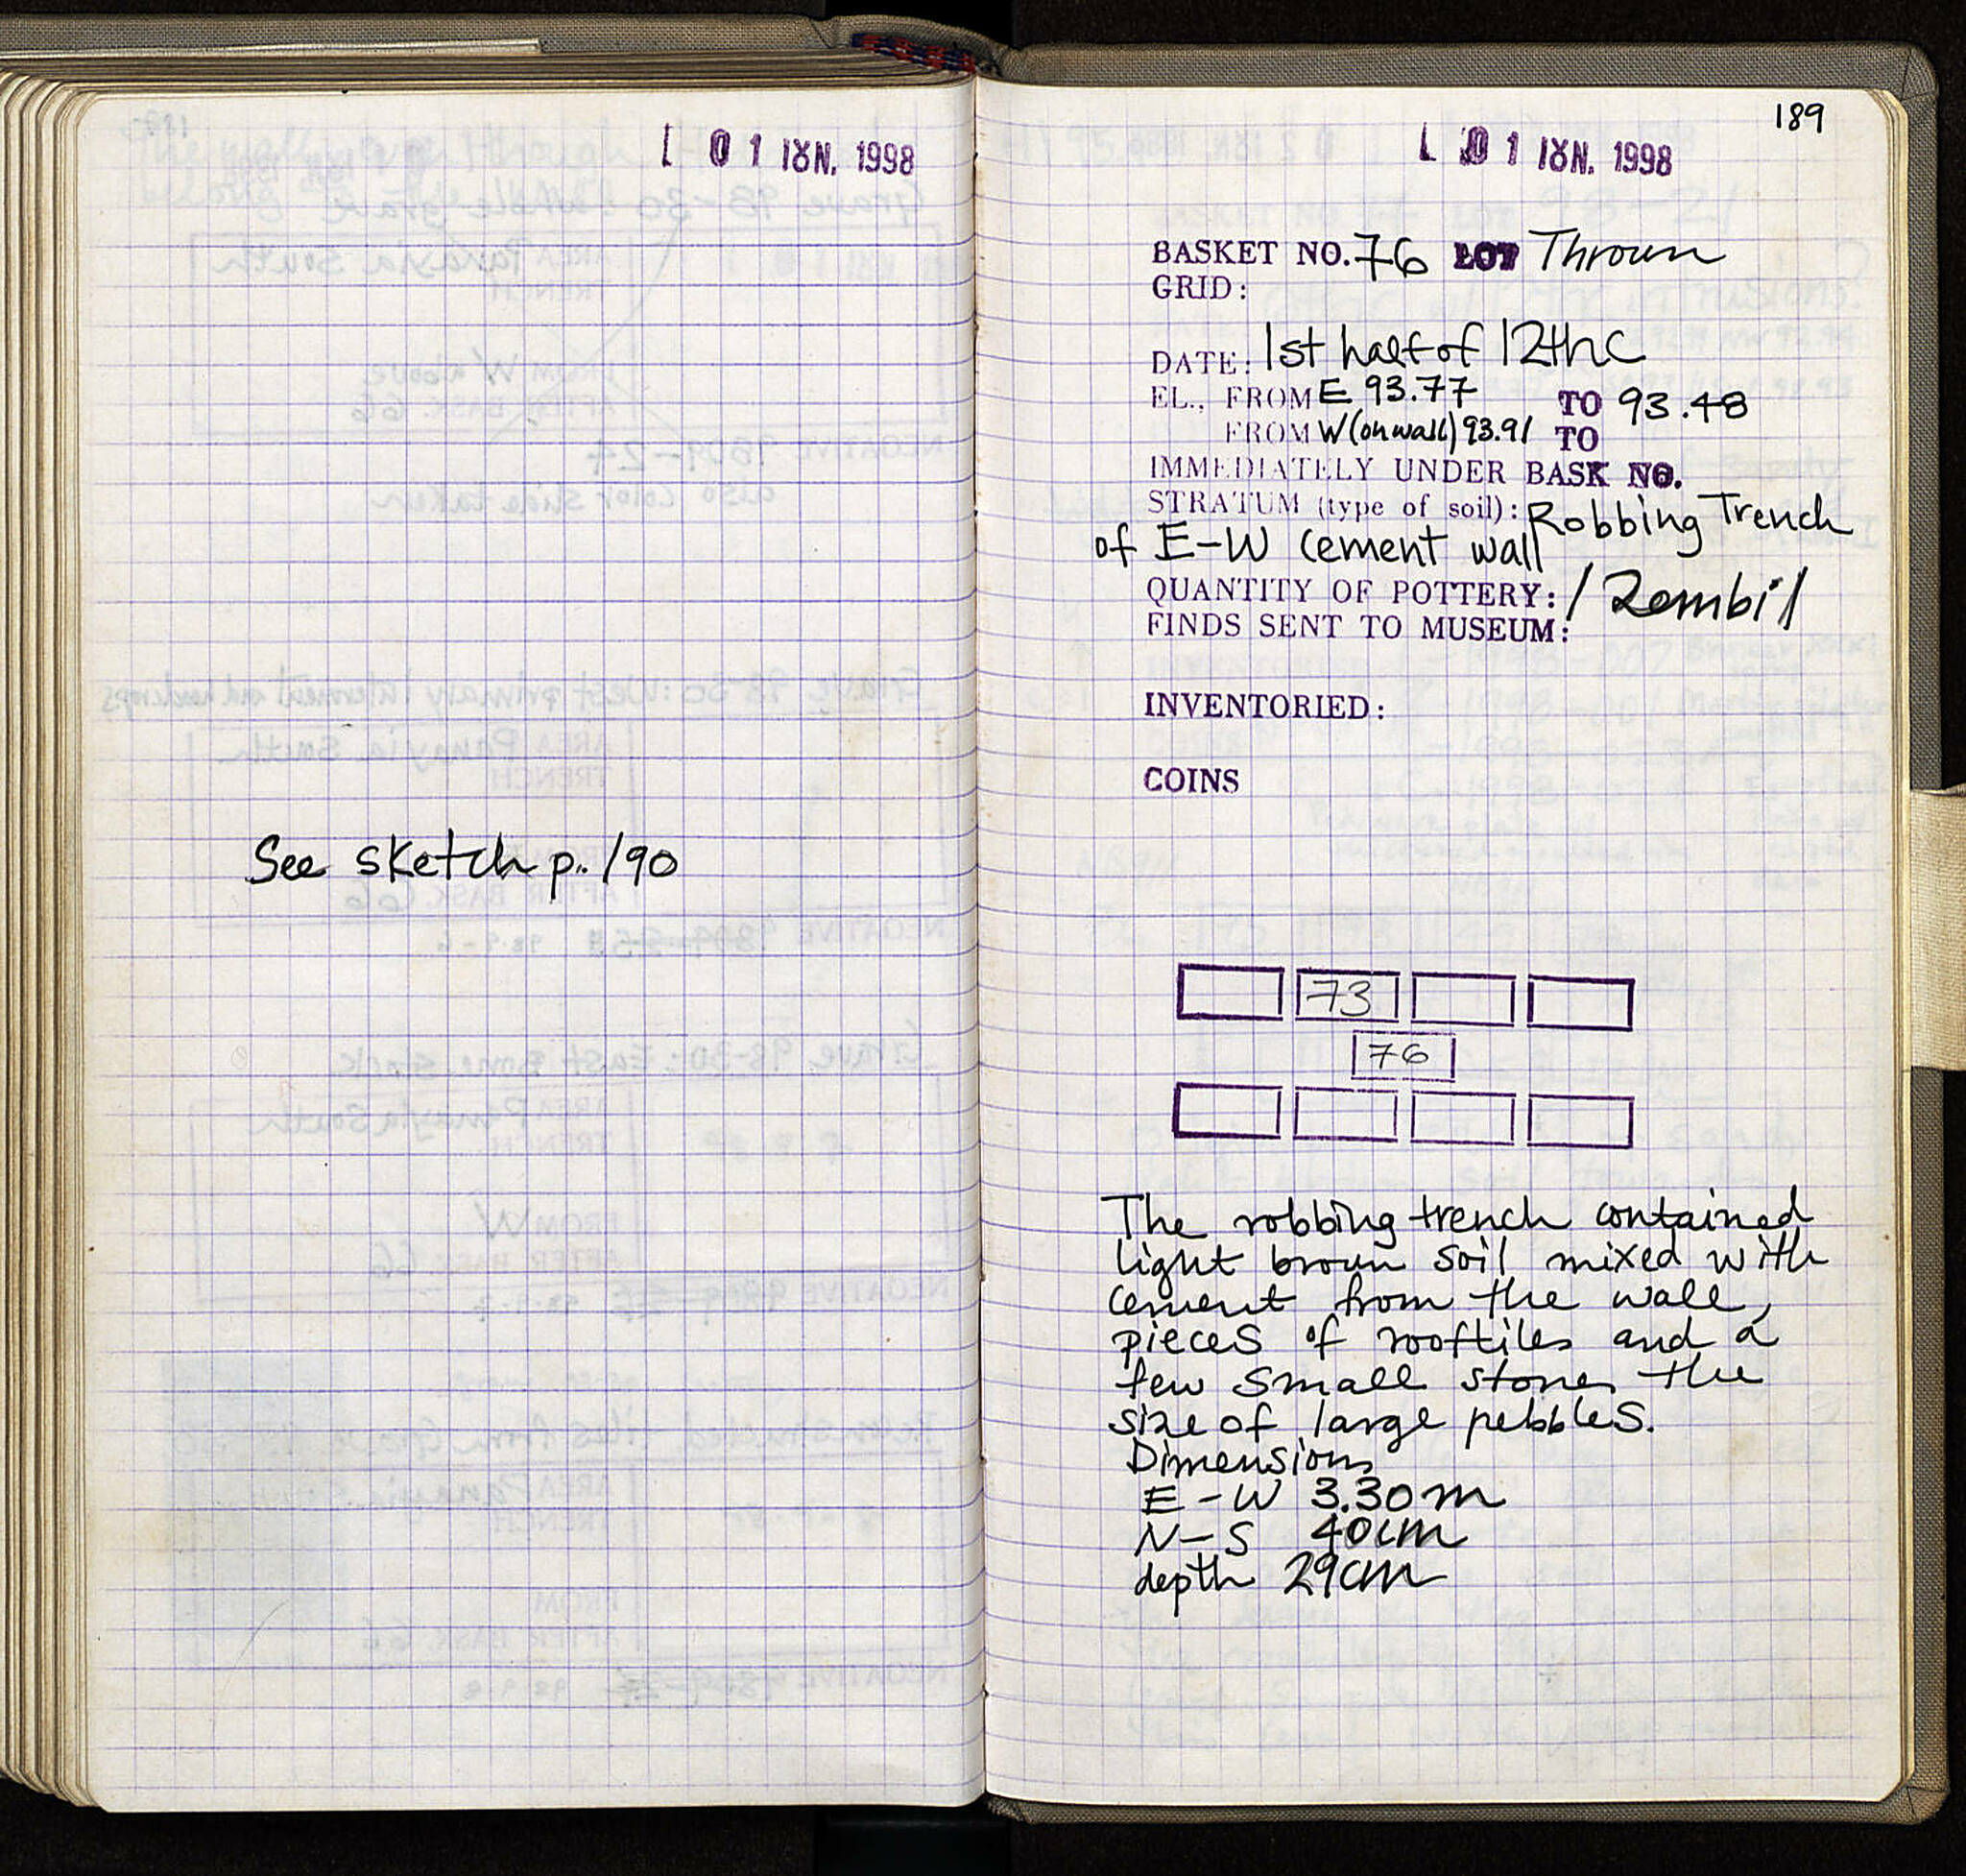 01 ΙΟΥΝ. 1998
See sketch p. 190
189
01 ΙΟΥΝ. 1998
BASKET NO. 76 LOT Thrown
GRID:
DATE: 1st half of 12thC
EL., FROM E 93.77 TO 93.48
FROM W (on wall) 93.91 TO
IMMEDIATELY UNDER BASK NO.
STRATUM (type of soil): Robbing Trench
of E-W cement wall
QUANTITY OF POTTERY: 1 Zembil
FINDS SENT TO MUSEUM:
INVENTORIED:
COINS
73
76
The robbing trench contained
light brown soil mixed with
cement from the wall,
pieces of rooftiles and a
few small stones the
size of large pebbles.
Dimensions
E-W 3.30m
N-S 40cm
depth 29cm